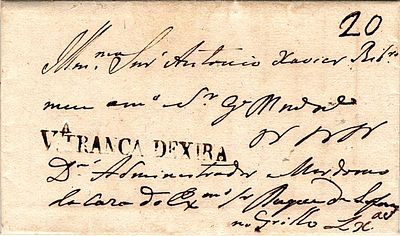 20
Illmo. Snr. Antonio Xavier Ribro
meu amo Sr. Ge
V.A FRANCA DEXIRA
Dr. Administrador Mordomo
da Caza do Exmo Sr Duque de Lafoens
no Grillo Lxa